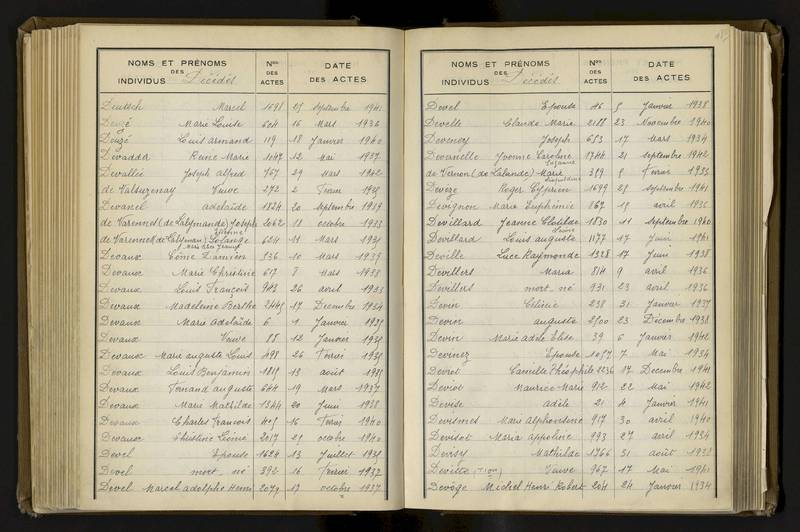 NOMS ET PRÉNOMS
DES Décédés
INDIVIDUS
Nos
DES
ACTES
DATE
DES ACTES
Deutsch Marcel 1698 25 septembre 1941
Deuzé Marie Louise 604 16 Mars 1936
Deuzé Louis armand 119 18 Janvier 1940
Devadda Reine Marie 1047 12 Mai 1937
Devallée Joseph alfred 767 29 Mars 1942
de Valsuzenay Veuve 272 2 Février
Devanel adelaïde 1824 20 septembre 1939
de Varennes (de Labymande) Joseph 2062 18 octobre 1933
Solange 624 11 Mars
Devaux Côme Damien 536 10 Mars 1939
Devaux Marie Christine 617 8 Mars 1938
Devaux Louis François 943 26 avril 1933
Devaux Madeleine Berthe 2445 17 Decembre 1934
Devaux Marie Adelaïde 6 1 Janvier
Devaux Veuve 88 12 Janvier
Devaux Marie auguste Louis 498 26 Février
Devaux Louis Benjamin 1819 13 août
Devaux Fernand auguste 644 19 Mars 1937
Devaux Marie Mathilde 1344 20 Juin 1938
Devaux Charles François 405 16 Février 1940
Devaux Christine Léonie 2017 29 octobre 1940
Devel Epouse 1624 13 Juillet
Devel mort né 392 16 Février 1937
Devel Marcel adolphe Henri 2079 17 octobre 1937
NOMS ET PRÉNOMS
DES Décédés
INDIVIDUS
Nos
DES
ACTES
DATE
DES ACTES
Devel Epouse 46 5 Janvier 1938
Develle Claude Marie 2188 23 Novembre 1940
Devenoy Joseph 653 17 Mars 1934
Devernelle Yvonne Caroline 1744 21 septembre 1942
Suzanne
de Vernon (de Lalande) Marie 389 8 Février
Devèze Roger Cyprien 1699 25 septembre 1941
Devignon Marie Euphémie 867 19 avril 1936
Devillard Jeanne Clotilde 1830 11 septembre 1940
Devillard Louis auguste 1177 17 Juin 1941
Deville Luce Raymonde 1328 17 Juin 1938
Devillers Maria 814 9 avril 1936
Devillers mort né 931 23 avril 1936
Devin 238 31 Janvier 1937
Devin auguste 2500 23 Décembre 1938
Devin Marie Adèle Elise 39 6 Janvier 1942
Devinez Epouse 1057 7 Mai 1934
Deviot Camille Théophile 2236 17 Décembre 1941
Deviot Maurice Marie 912 22 Mai 1942
Devise adèle 21 4 Janvier 1941
Marie Alphonsine 917 30 avril 1940
Devisot Maria appoline 993 27 avril 1934
Devisy Mathilde 1766 31 août 1938
Veuve 967 17 Mai 1941
Devôge Michel Henri Robert 204 24 Janvier 1934